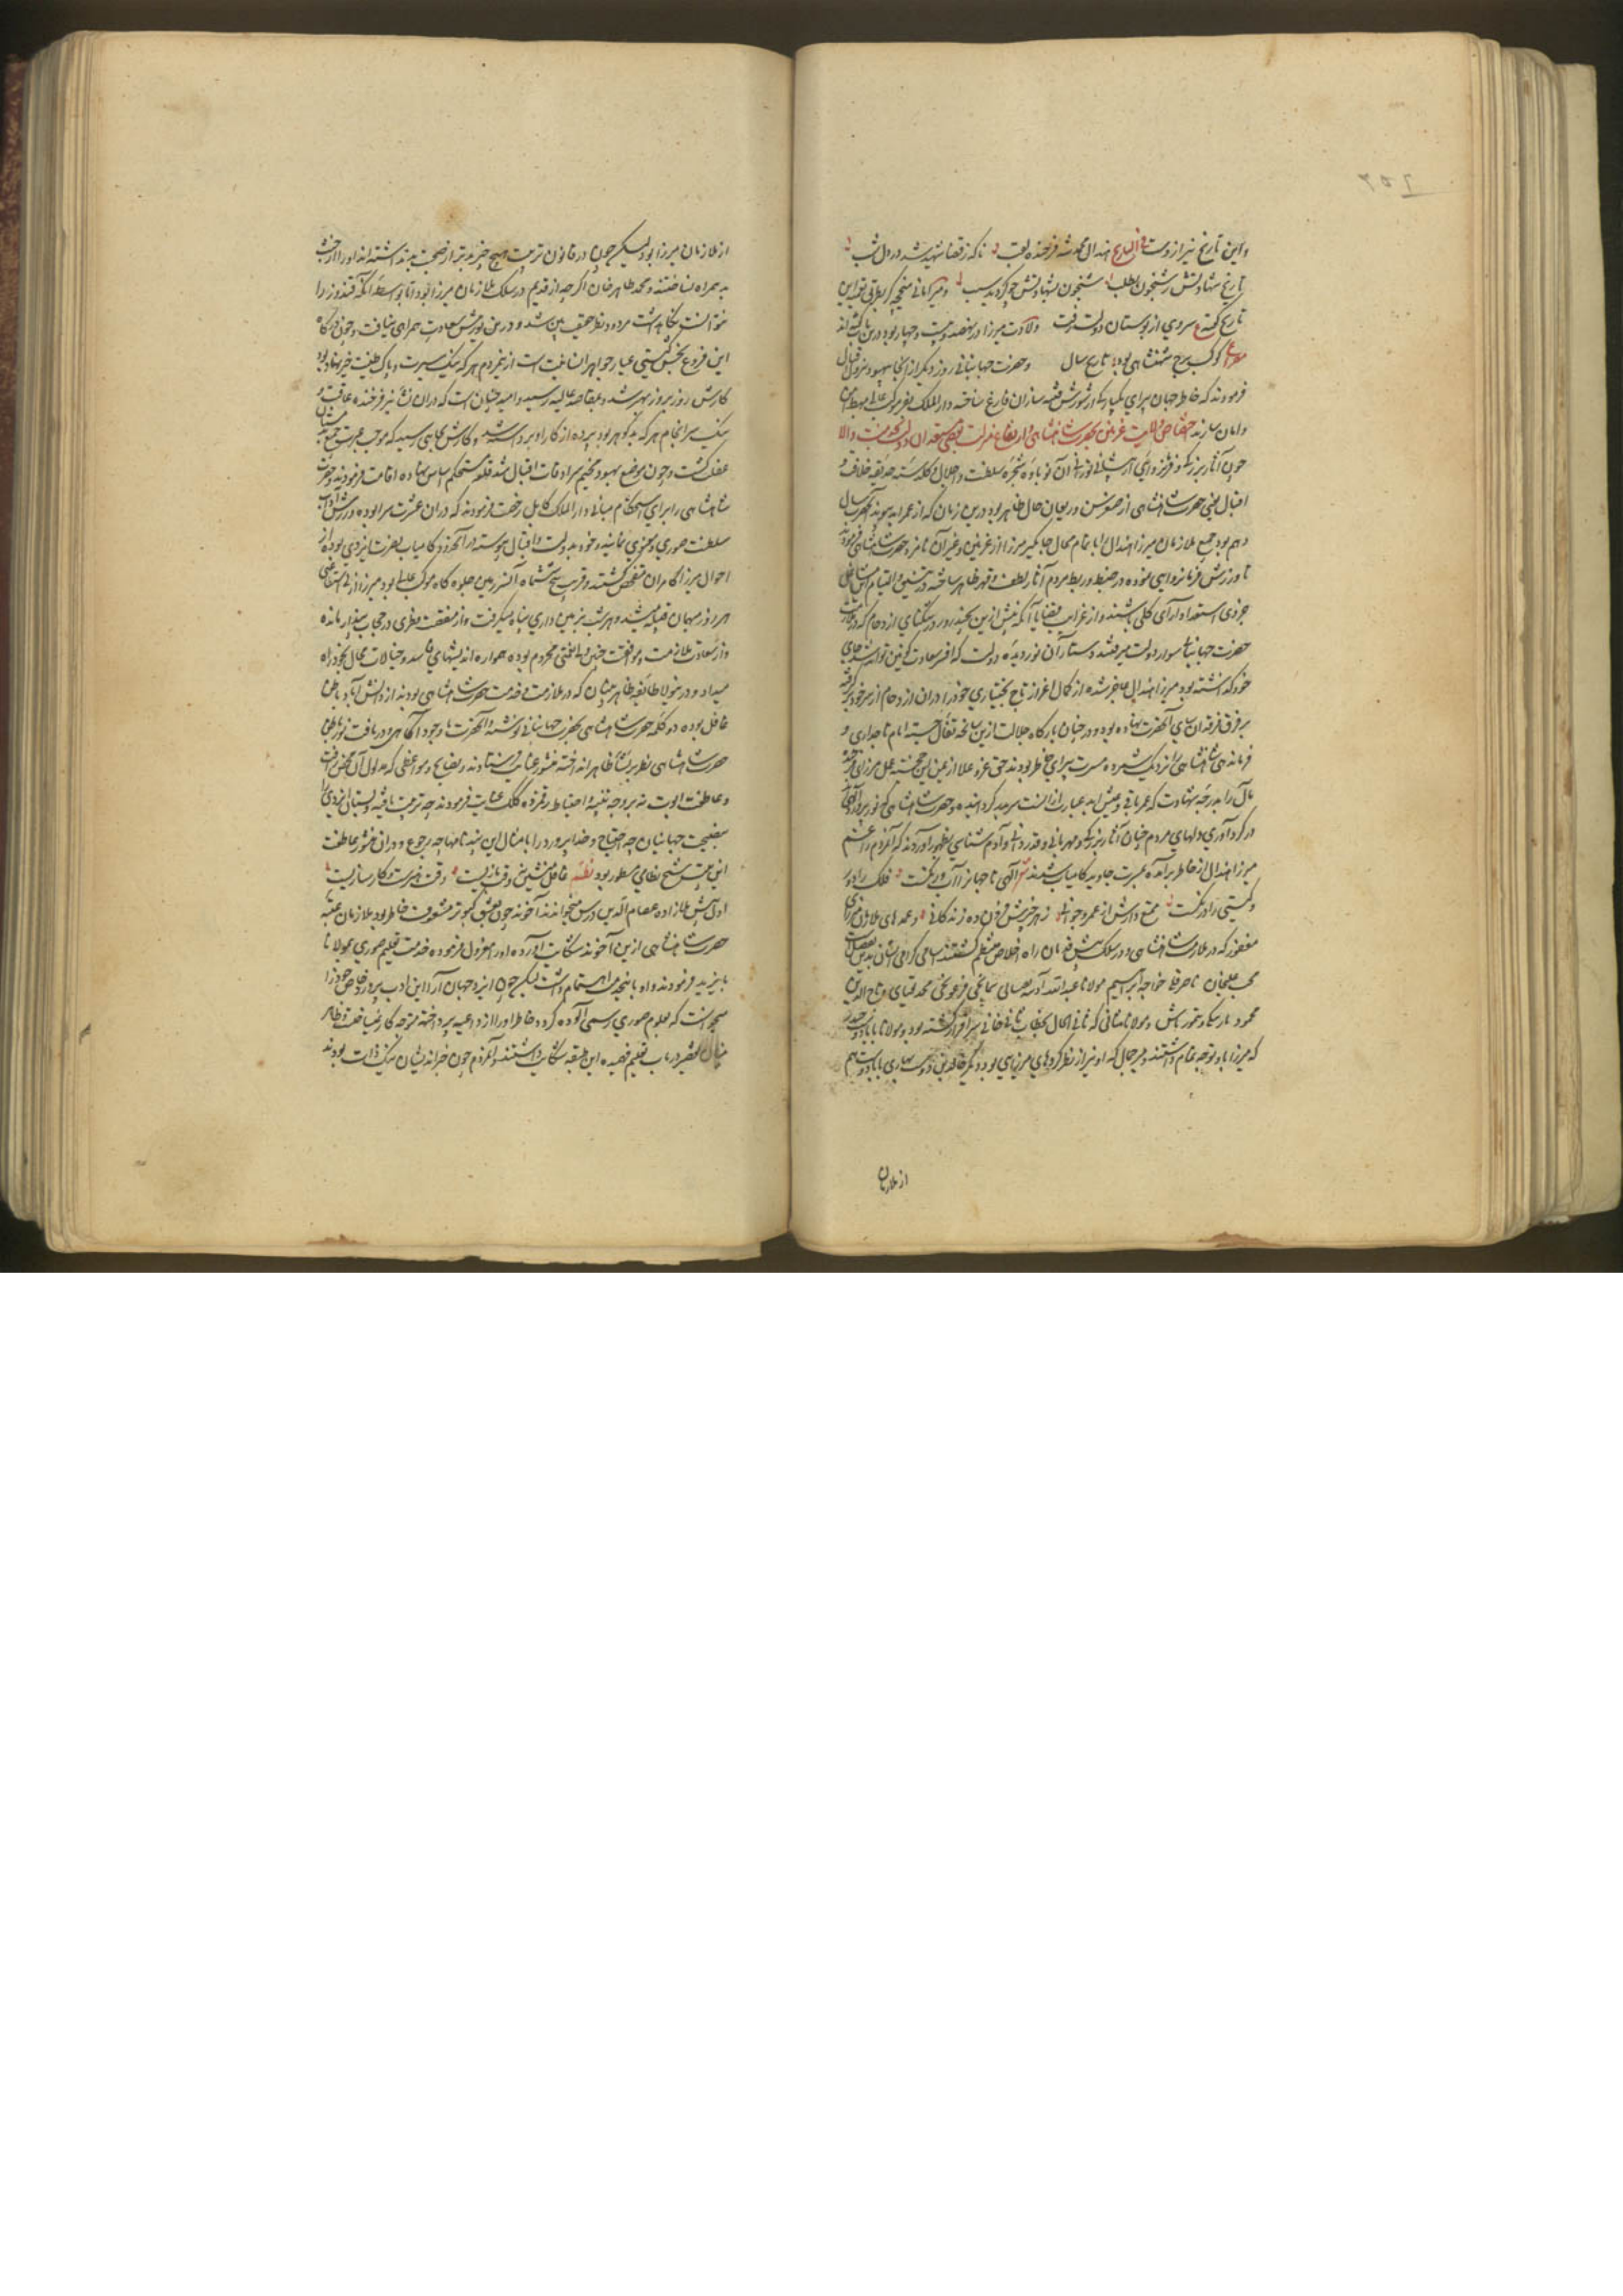 و این تاریخ نیز از وست فی التاریخ هندال محمد شه فرخنده لقب ناگه ز قضا شهید شد در دل شب
تاریخ شهادتش ز شبخون بطلب شبخون بشهادتش چو گردید سبب و میر امانی بطریق تعمیه این
تاریخ گفته ع سروی از بوستان دولت رفت ولادت میرزا در نهصد و بیست و چهار بود درین باب گفته اند
مصراع کوکب برج شهنشاهی بود تاریخ سال و حضرت جهانبانی روز دیگر از آنجا به بهسود نزول اقبال
فرمودند که خاطر جهان پیرای یکبارگی از شورش فتنه سازان فارغ ساخته دارالملک را مهبط امن
و امان سازند اختصاص ولایت غزنین بحضرت شاهنشاهی و ارتفاع منزلت
چون آثار بزرگی و فر فرمانروایی از پیشانی نورانی آن نوباوه شجره سلطنت و اجلال و گلدسته حدیقه خلافت و
اقبال یعنی حضرت شاهنشاهی از صغر سن و ریعان حال ظاهر بود درین زمان که از عمر ابد پیوند آنحضرت سال
دهم بود جمیع ملازمان میرزا هندال را با تمام محال جایگیر میرزا از غزنین و غیر آن نامزد حضرت شاهنشاهی فرمودند
تا ورزش فرمانروایی نموده در ضبط و ربط مردم آثار لطف و قهر ظاهر ساخته
جزوی استعداد آرای کلی باشند و از غرایب قضایا آنکه پیش ازین بچند روز در تنگنای ازدحام که در خدمت
حضرت جهانبانی سوار دولت میرفتند دستار آن نوردیده دولت که افسر سعادت کونین تواند شد از جای
خود گذشته بود میرزا هندال حاضر شده از کمال اعزاز تاج بختیاری خود را در آن ازدحام از سر خود برگرفته
بر فرق فرقدان سای آنحضرت نهاده بود و در چنان بارگاه جلالت ازین سانحه تفأل جسته ایام تاجداری و
فرماندهی شاهنشاهی را نزدیک شمرده مسرت پیرای خاطر بودند حق عز و علا از عین این خجسته عمل میرزای
مآل را بدرجه شهادت که عمر باقی و عیش ابد عبارت از آنست سربلند گردانیده و حضرت شاهنشاهی که نورپرورد الهی
در گردآوری دلهای مردم چنان آثار بزرگی و مهربانی و قدردانی و آدم شناسی بظهور آوردند که آنمردم را غم
میرزا هندال از خاطر برآمده بعشرت جاوید کامیاب شدند الهی تا جهان را آب و رنگست فلک را دور
و گیتی را درنگست ممتع دارش از عمر و جوانی ز هر چیزش فزون ده زندگانی و عمده های ملازمان میرزای
مغفور که در ملازمت شاهنشاهی در سلک پیش قدمان راه اخلاص منتظم گشتند اسامی گرامی ایشان بدین تفصیلست
محب علیخان ناصر قلی خواجه ابراهیم مولانا عبدالله آدینه تقبای سمانچی قرغوجی محمد تقبای و تاج الدین
محمود باربیگی و تیمور تاش و مولانا ثانی که ثانی الحال بخطاب ثانی خانی سرافراز گشته بود و مولانا بابا دوست صدر
که میرزا باو توجه تمام داشتند و میر جمال که او نیز از نظرکردهای میرزایی بود و دیگر خالدین دوست سهاری بابا دوست هم
از ملازمان
از ملازمان میرزا بود لیکن چون در قانون تربیت هیچ چیز بدتر از صحبت بد نداشته اند او را از خدمت
بد همراه نساختند و محمد طاهر خان اگرچه از قدیم در سلک ملازمان میرزا بود اما بواسطه آنکه قندوز را
نتوانست نگاه داشت مردود نظر حقیقت بین شد و درین یورش سعادت همراهی نیافت و چون درگاه
این فروغ بخش گیتی عیار جواهر انسانیت است ازین مردم هر که نیک سیرت و پاک طینت خیر نهاد بود
کارش روز بروز بهتر شد و بمقاصد عالیه رسید و امید چنان است که در آن نشأه نیز فرخنده عاقبت و
نیک سرانجام هر که بدگوهر بود پرده از کار او برداشته شد و کارش بجایی رسید که موجب عبرت جمیع
گشت و چون موضع بهسود مخیم سرادقات اقبال شد قلعه مستحکم اساس نهاده اقامت فرمودند و حضرت
شاهنشاهی را برای استحکام مبانی دارالملک کابل رخصت فرمودند که در آن عشرت سرا بوده ورزش آداب
سلطنت صوری و معنوی نمایند و خود بدولت و اقبال پیوسته در آنحدود کامیاب نصرت ایزدی بوده از
احوال میرزا کامران متفحص گشتند و قریب پنج شش ماه آن سرزمین جلوه گاه موکب عالی بود میرزا از بی استقامتی
هر روز مهمان قبیله میشد و هر شب بزمین داری پناه میگرفت و از منقصت فطری در حجاب پندار مانده
و از سعادت ملازمت و موافقت چنین ولی نعمتی محروم بوده همواره اندیشهای فاسد و خیالات محال بخود راه
میداد و درینولا طائفه ظاهربینان که در ملازمت و خدمت حضرت شاهنشاهی بودند از دانش آباد باطن
غافل بوده دو کلمه حضرت شاهنشاهی بحضرت جهانبانی نوشتند و آنحضرت با وجود آگاهی و دریافت نور باطن
حضرت شاهنشاهی نظر بر نشأه ظاهر انداخته منشور عنایت فرستادند و نصایح و مواعظی که مدلول آن محض رأفت
و عاطفت ابوت نه بر وجه تنبیه و احتیاط رقمزده کلک عنایت فرمودند چه تربیت یافته دبستان ایزدی را
بنصیحت جهانیان چه احتیاج و خداپرورد را با مثال این پندنامها چه رجوع و در آن منشور عاطفت
این بیت شیخ نظامی مسطور بود نظم غافل منشین نه وقت بازیست وقت هنرست و کارسازیست
اول پیش ملازاده عصام الدین درس میخواندند آخوند چون بعشق کبوتر مشعوف خاطر بود ملازمان عتبه
حضرت شاهنشاهی ازین آخوند شکایت آورده او را معزول فرموده خدمت تعلیم صوری بمولانا
بایزید فرمودند و او با اینخدمت اهتمام داشت لیکن چون ایزد جهان آرا این ادب پرورد خاص خود را
نمیخواست که بعلوم صوری رسمی آلوده گردد خاطر او را از داعیه پرداخته متوجه کار نمیساخت و ظاهر
بینان تقصیر در باب تعلیم فهمیده این طبقه شکایت داشتند و آنمردم چون خیراندیشان نیک ذات بودند